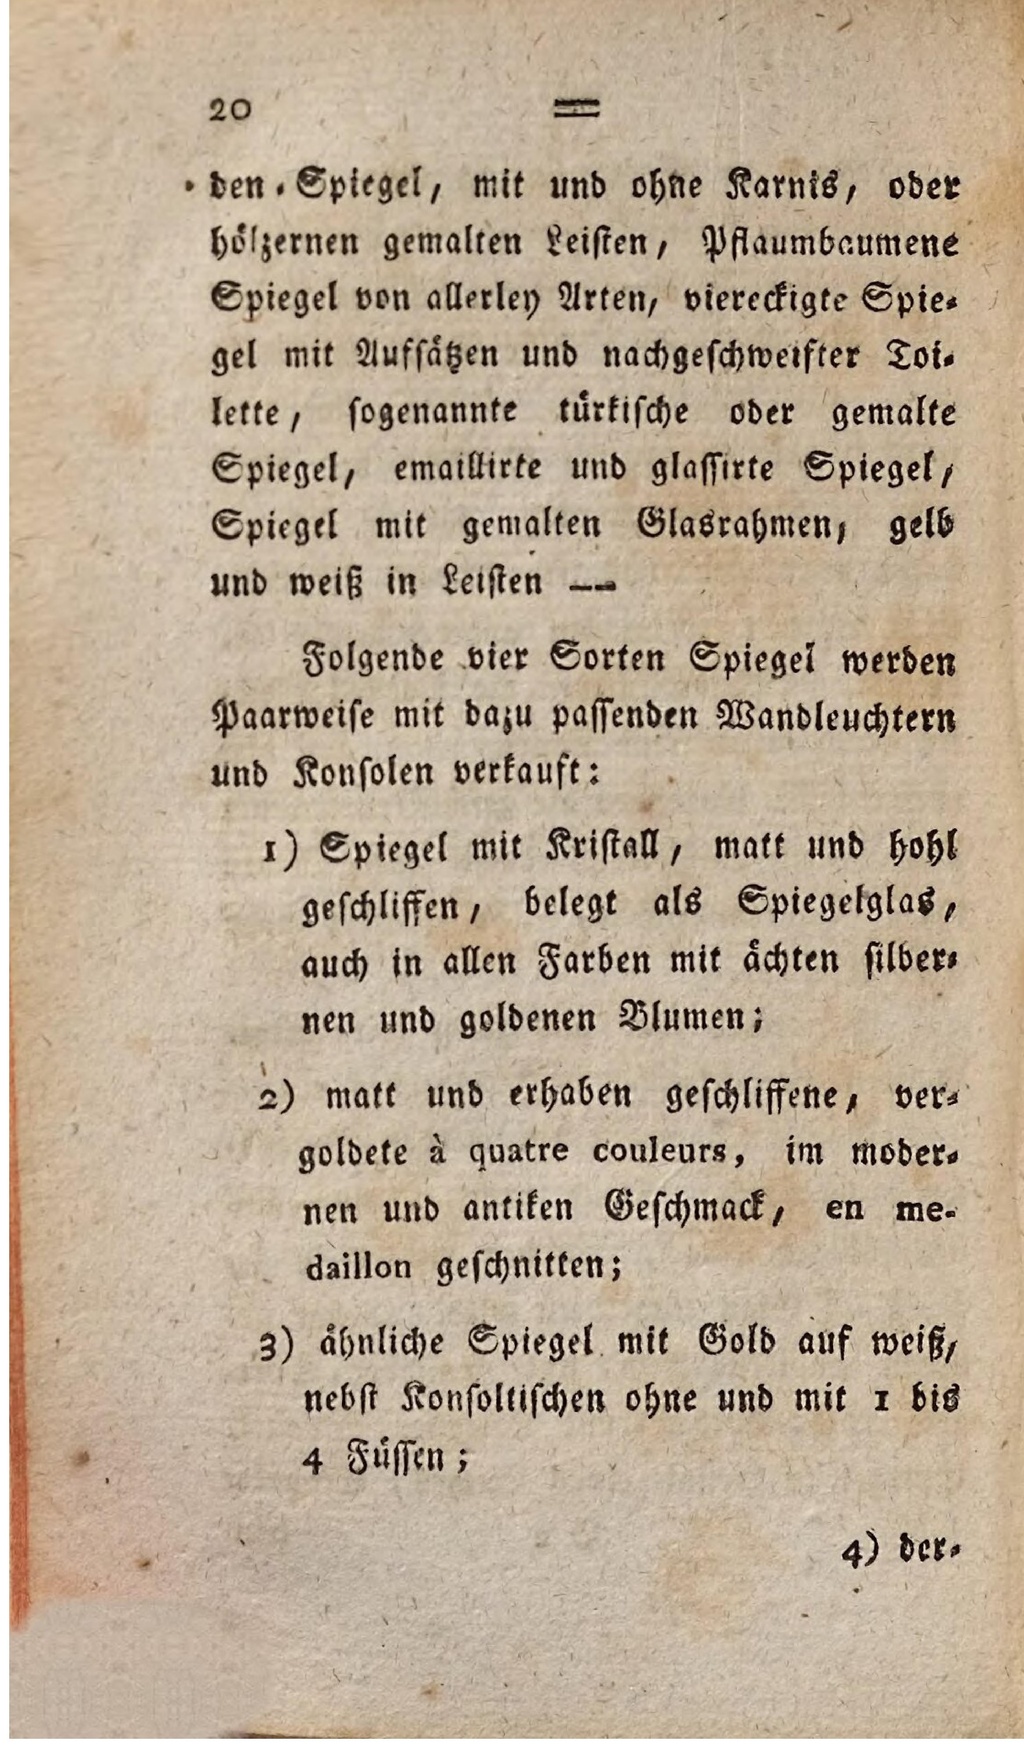 20 =
den-Spiegel, mit und ohne Karnis, oder
hölzernen gemalten Leisten, Pflaumbaumene
Spiegel von allerley Arten, viereckigte Spie-
gel mit Aufsätzen und nachgeschweifter Toi-
lette, sogenannte türkische oder gemalte
Spiegel, emaillirte und glassirte Spiegel,
Spiegel mit gemalten Glasrahmen, gelb
und weiß in Leisten ——
Folgende vier Sorten Spiegel werden
Paarweise mit dazu passenden Wandleuchtern
und Konsolen verkauft:
1) Spiegel mit Kristall, matt und hohl
geschliffen, belegt als Spiegelglas,
auch in allen Farben mit ächten silber-
nen und goldenen Blumen;
2) matt und erhaben geschliffene, ver-
goldete à quatre couleurs, im moder-
nen und antiken Geschmack, en me-
daillon geschnitten;
3) ähnliche Spiegel mit Gold auf weiß,
nebst Konsoltischen ohne und mit 1 bis
4 Füssen;
4) der-